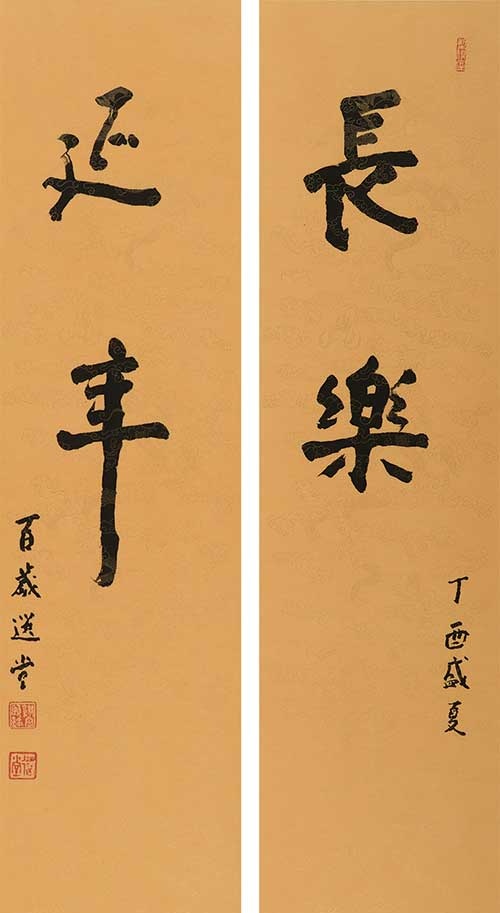 長樂
丁酉盛夏
延年
百歲選堂